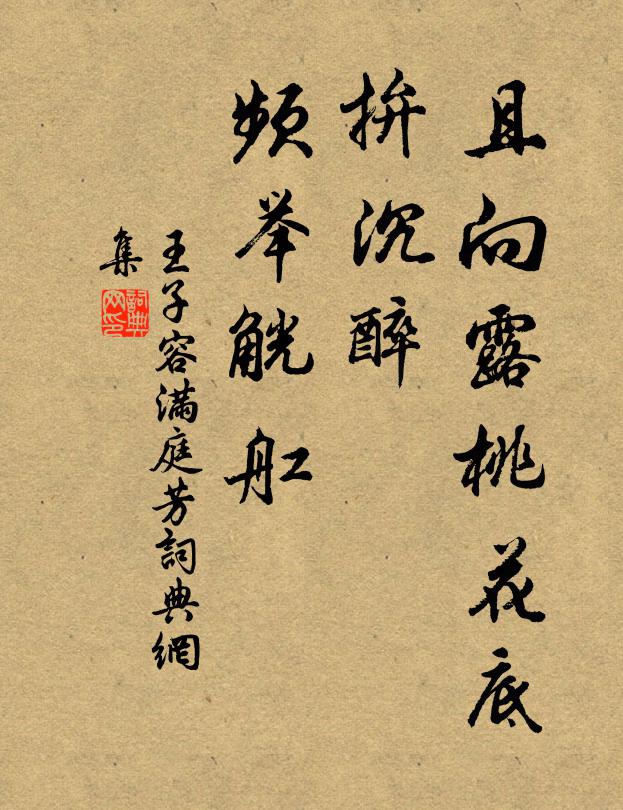 且向露桃花底
拚沉醉
频举觥舡
王子容滿庭芳詞典網
集
詞典网印